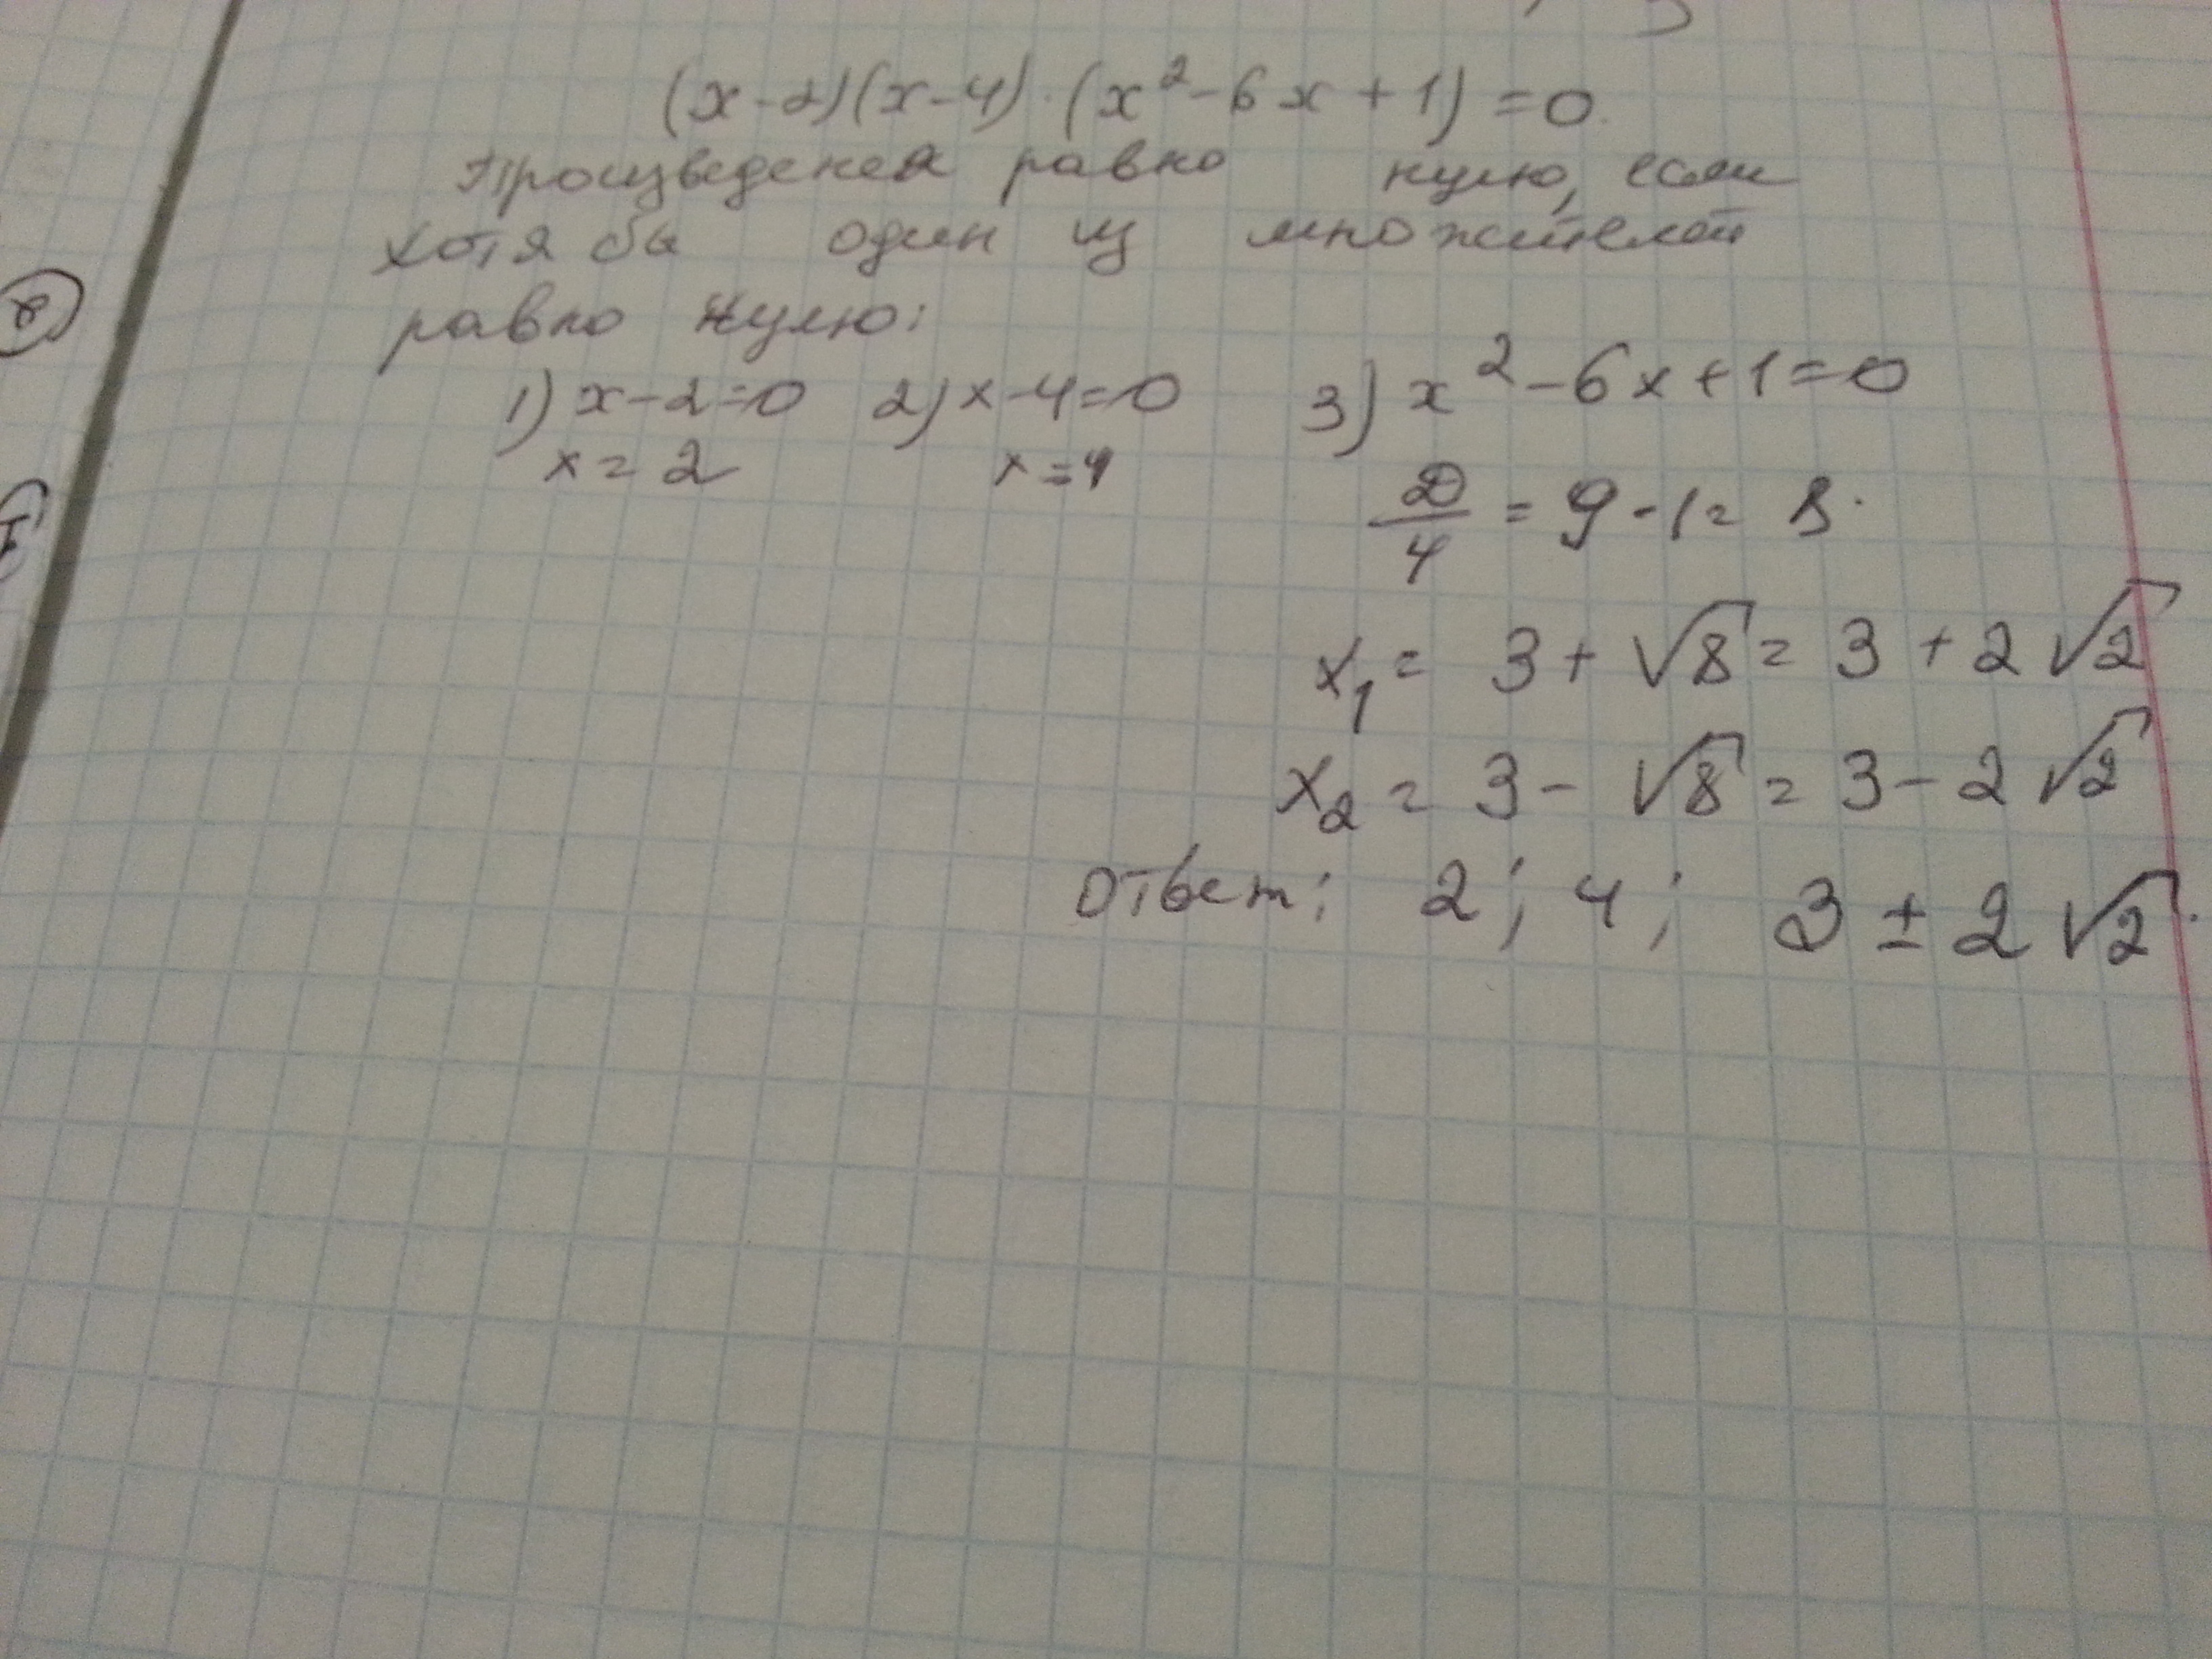 (x-2)(x-4)·(x²-6x+1)=0.
Произведения равно нулю, если
хотя бы один из множителей
равно нулю:
1) x-2=0 2) x-4=0 3) x²-6x+1=0
x=2 x=4
D/4 = 9-1= 8.
x₁= 3+√8= 3+2√2
x₂= 3-√8= 3-2√2
Ответ: 2; 4; 3±2√2.